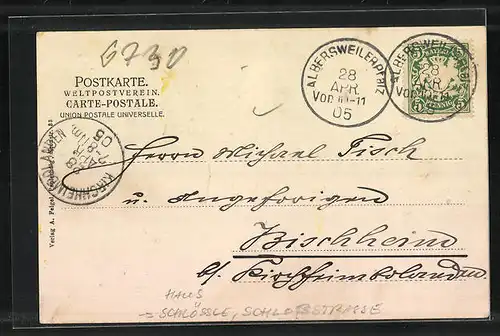 6730
POSTKARTE.
WELTPOSTVEREIN.
CARTE-POSTALE.
UNION POSTALE UNIVERSELLE.
ALBERSWEILER PFALZ
28
APR
VOR 10-11
05
ALBERSWEILER PFALZ
28
APR
VOR 10-11
5 PFENNIG 5
KIRCHHEIMBOLANDEN
28
APR
05
Herrn Michael Fisch
u. Angehörigen
Bischheim
b/ Kirchheimbolanden
Verlag A. Felge
HAUS
= SCHLÖSSLE, SCHLOßSTRASSE